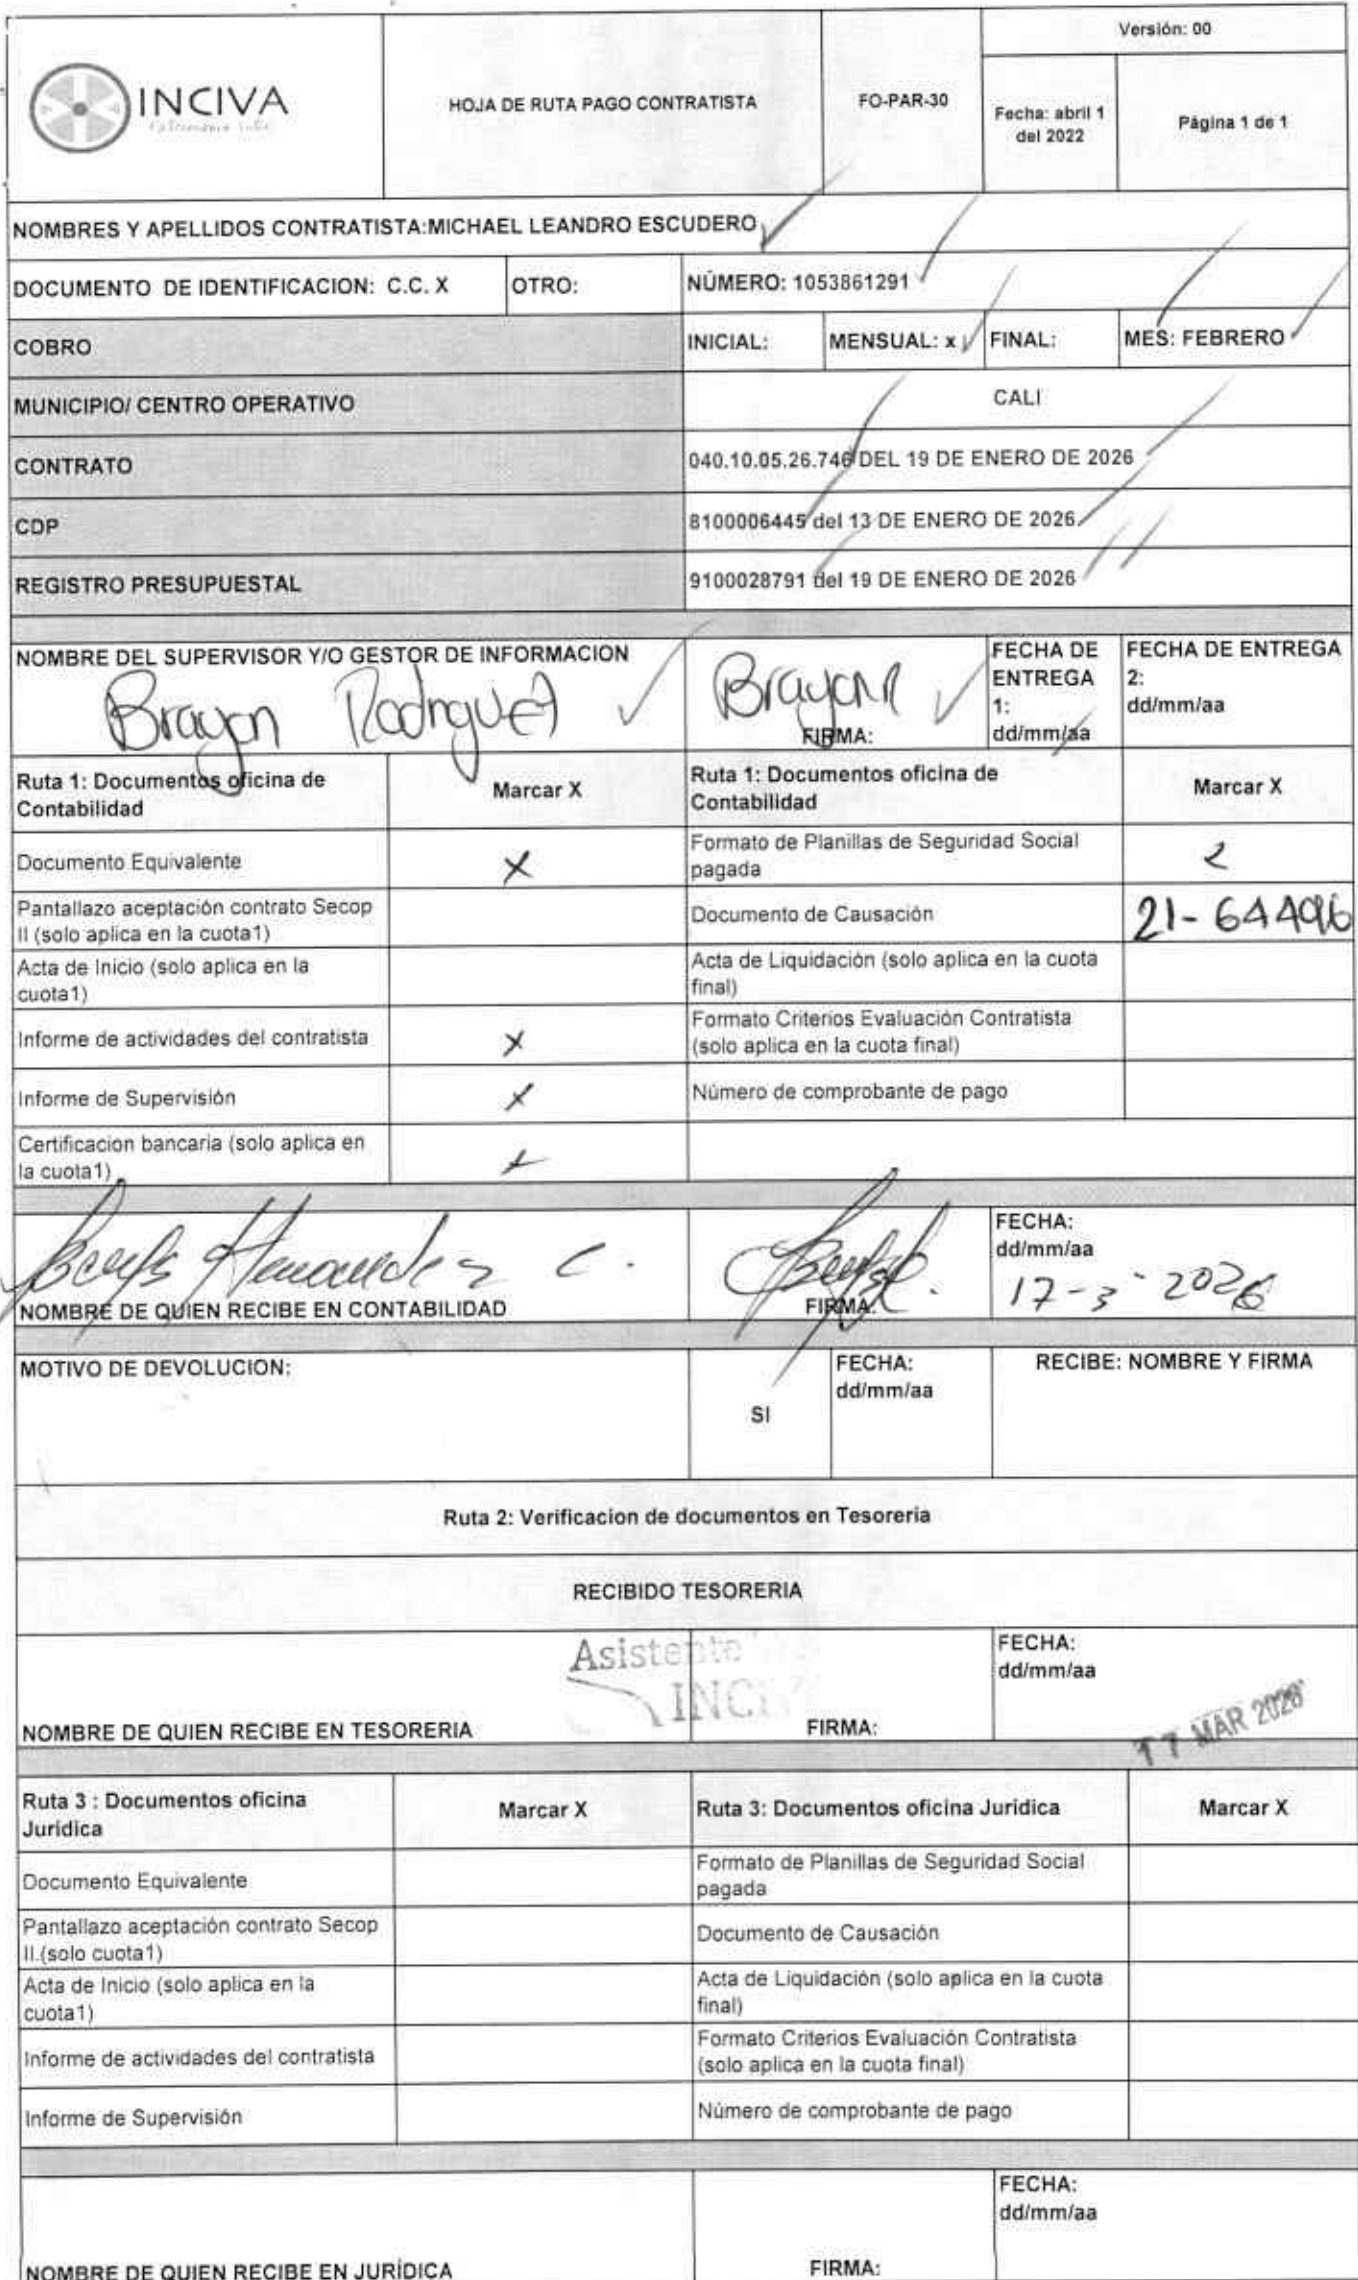 INCIVA
HOJA DE RUTA PAGO CONTRATISTA
FO-PAR-30
Versión: 00
Fecha: abril 1
del 2022
Página 1 de 1
NOMBRES Y APELLIDOS CONTRATISTA:MICHAEL LEANDRO ESCUDERO
DOCUMENTO DE IDENTIFICACION: C.C. X
OTRO:
NÚMERO: 1053861291
COBRO
INICIAL:
MENSUAL: x
FINAL:
MES: FEBRERO
MUNICIPIO/ CENTRO OPERATIVO
CALI
CONTRATO
040.10.05.26.746 DEL 19 DE ENERO DE 2026
CDP
8100006445 del 13 DE ENERO DE 2026
REGISTRO PRESUPUESTAL
9100028791 del 19 DE ENERO DE 2026
NOMBRE DEL SUPERVISOR Y/O GESTOR DE INFORMACION
Brayan Rodriguez
Brayan R
FIRMA:
FECHA DE
ENTREGA
1:
dd/mm/aa
FECHA DE ENTREGA
2:
dd/mm/aa
Ruta 1: Documentos oficina de
Contabilidad
Marcar X
Ruta 1: Documentos oficina de
Contabilidad
Marcar X
Documento Equivalente
X
Formato de Planillas de Seguridad Social
pagada
Pantallazo aceptación contrato Secop
II (solo aplica en la cuota1)
Documento de Causación
21-64496
Acta de Inicio (solo aplica en la
cuota1)
Acta de Liquidación (solo aplica en la cuota
final)
Informe de actividades del contratista
X
Formato Criterios Evaluación Contratista
(solo aplica en la cuota final)
Informe de Supervisión
X
Número de comprobante de pago
Certificacion bancaria (solo aplica en
la cuota1)
X
Hernandez C.
NOMBRE DE QUIEN RECIBE EN CONTABILIDAD
FIRMA:
FECHA:
dd/mm/aa
17-3-2026
MOTIVO DE DEVOLUCION:
SI
FECHA:
dd/mm/aa
RECIBE: NOMBRE Y FIRMA
Ruta 2: Verificacion de documentos en Tesoreria
RECIBIDO TESORERIA
Asistente
INCI
NOMBRE DE QUIEN RECIBE EN TESORERIA
FIRMA:
FECHA:
dd/mm/aa
17 MAR 2026
Ruta 3 : Documentos oficina
Jurídica
Marcar X
Ruta 3: Documentos oficina Juridica
Marcar X
Documento Equivalente
Formato de Planillas de Seguridad Social
pagada
Pantallazo aceptación contrato Secop
II.(solo cuota1)
Documento de Causación
Acta de Inicio (solo aplica en la
cuota1)
Acta de Liquidación (solo aplica en la cuota
final)
Informe de actividades del contratista
Formato Criterios Evaluación Contratista
(solo aplica en la cuota final)
Informe de Supervisión
Número de comprobante de pago
NOMBRE DE QUIEN RECIBE EN JURÍDICA
FIRMA:
FECHA:
dd/mm/aa